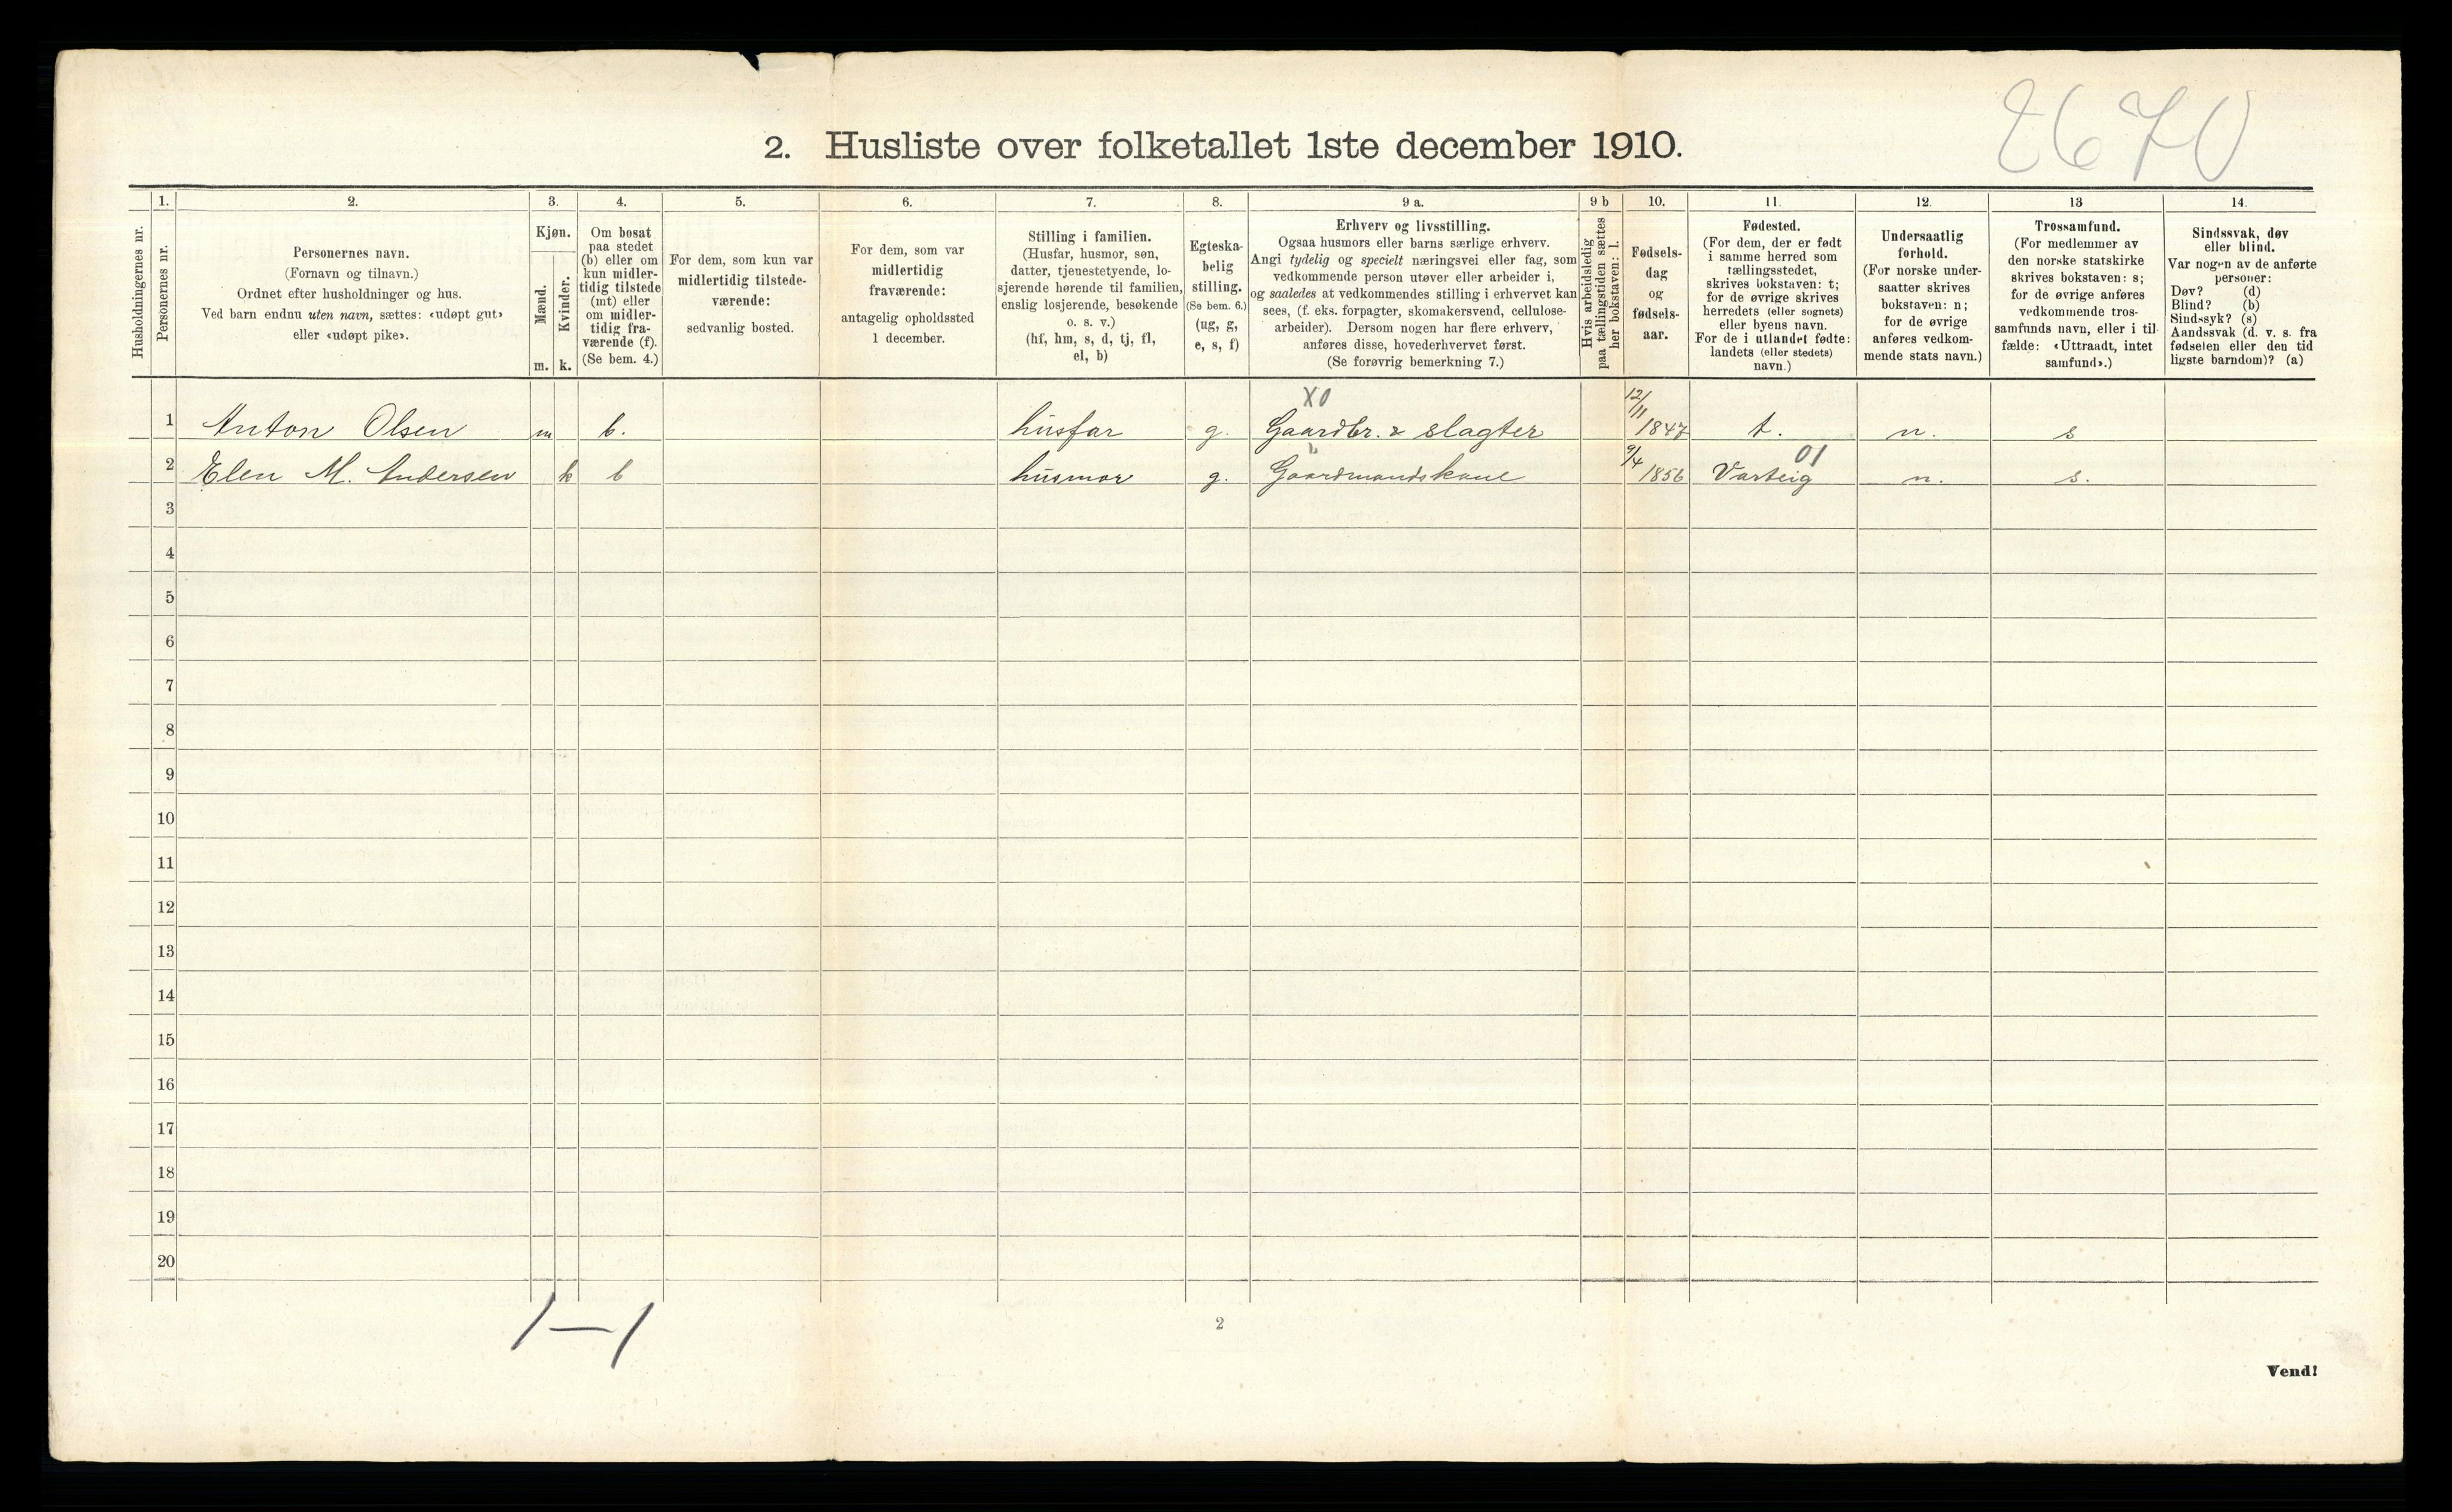 2670
2. Husliste over folketallet 1ste december 1910.
Husholdningernes nr.
1.
Personernes nr.
2.
Personernes navn.
(Fornavn og tilnavn.)
Ordnet efter husholdninger og hus.
Ved barn endnu uten navn, sættes: «udøpt gut»
eller «udøpt pike».
3.
Kjøn.
Mænd.
m.
Kvinder.
k.
4.
Om bosat
paa stedet
(b) eller om
kun midler-
tidig tilstede
(mt) eller
om midler-
tidig fra-
værende (f).
(Se bem. 4.)
5.
For dem, som kun var
midlertidig tilstede-
værende:
sedvanlig bosted.
6.
For dem, som var
midlertidig
fraværende:
antagelig opholdssted
1 december.
7.
Stilling i familien.
(Husfar, husmor, søn,
datter, tjenestetyende, lo-
sjerende hørende til familien,
enslig losjerende, besøkende
o. s. v.)
(hf, hm, s, d, tj, fl,
el, b)
8.
Egteska-
belig
stilling.
(Se bem. 6.)
(ug, g,
e, s, f)
9 a.
Erhverv og livsstilling.
Ogsaa husmors eller barns særlige erhverv.
Angi tydelig og specielt næringsvei eller fag, som
vedkommende person utøver eller arbeider i,
og saaledes at vedkommendes stilling i erhvervet kan
sees, (f. eks. forpagter, skomakersvend, cellulose-
arbeider). Dersom nogen har flere erhverv,
anføres disse, hovederhvervet først.
(Se forøvrig bemerkning 7.)
9 b
Hvis arbeidsledig
paa tællingstiden sættes
her bokstaven: l.
10.
Fødsels-
dag
og
fødsels-
aar.
11.
Fødested.
(For dem, der er født
i samme herred som
tællingsstedet,
skrives bokstaven: t;
for de øvrige skrives
herredets (eller sognets)
eller byens navn.
For de i utlandet fødte:
landets (eller stedets)
navn.)
12.
Undersaatlig
forhold.
(For norske under-
saatter skrives
bokstaven: n;
for de øvrige
anføres vedkom-
mende stats navn.)
13
Trossamfund.
(For medlemmer av
den norske statskirke
skrives bokstaven: s;
for de øvrige anføres
vedkommende tros-
samfunds navn, eller i til-
fælde: «Uttraadt, intet
samfund».)
14.
Sindssvak, døv
eller blind.
Var nogen av de anførte
personer:
Døv? (d)
Blind? (b)
Sindssyk? (s)
Aandssvak (d. v. s. fra
fødselen eller den tid
ligste barndom)? (a)
X0
1 Anton Olsen m b. husfar g. Gaardbr. & slagter 12/11 1847 t. n. s
01
2 Elen M. Andersen k b husmor g. Gaardmandskone 9/4 1856 Varteig n. s.
3
4
5
6
7
8
9
10
11
12
13
14
15
16
17
18
19
20
1—1
2
Vend!